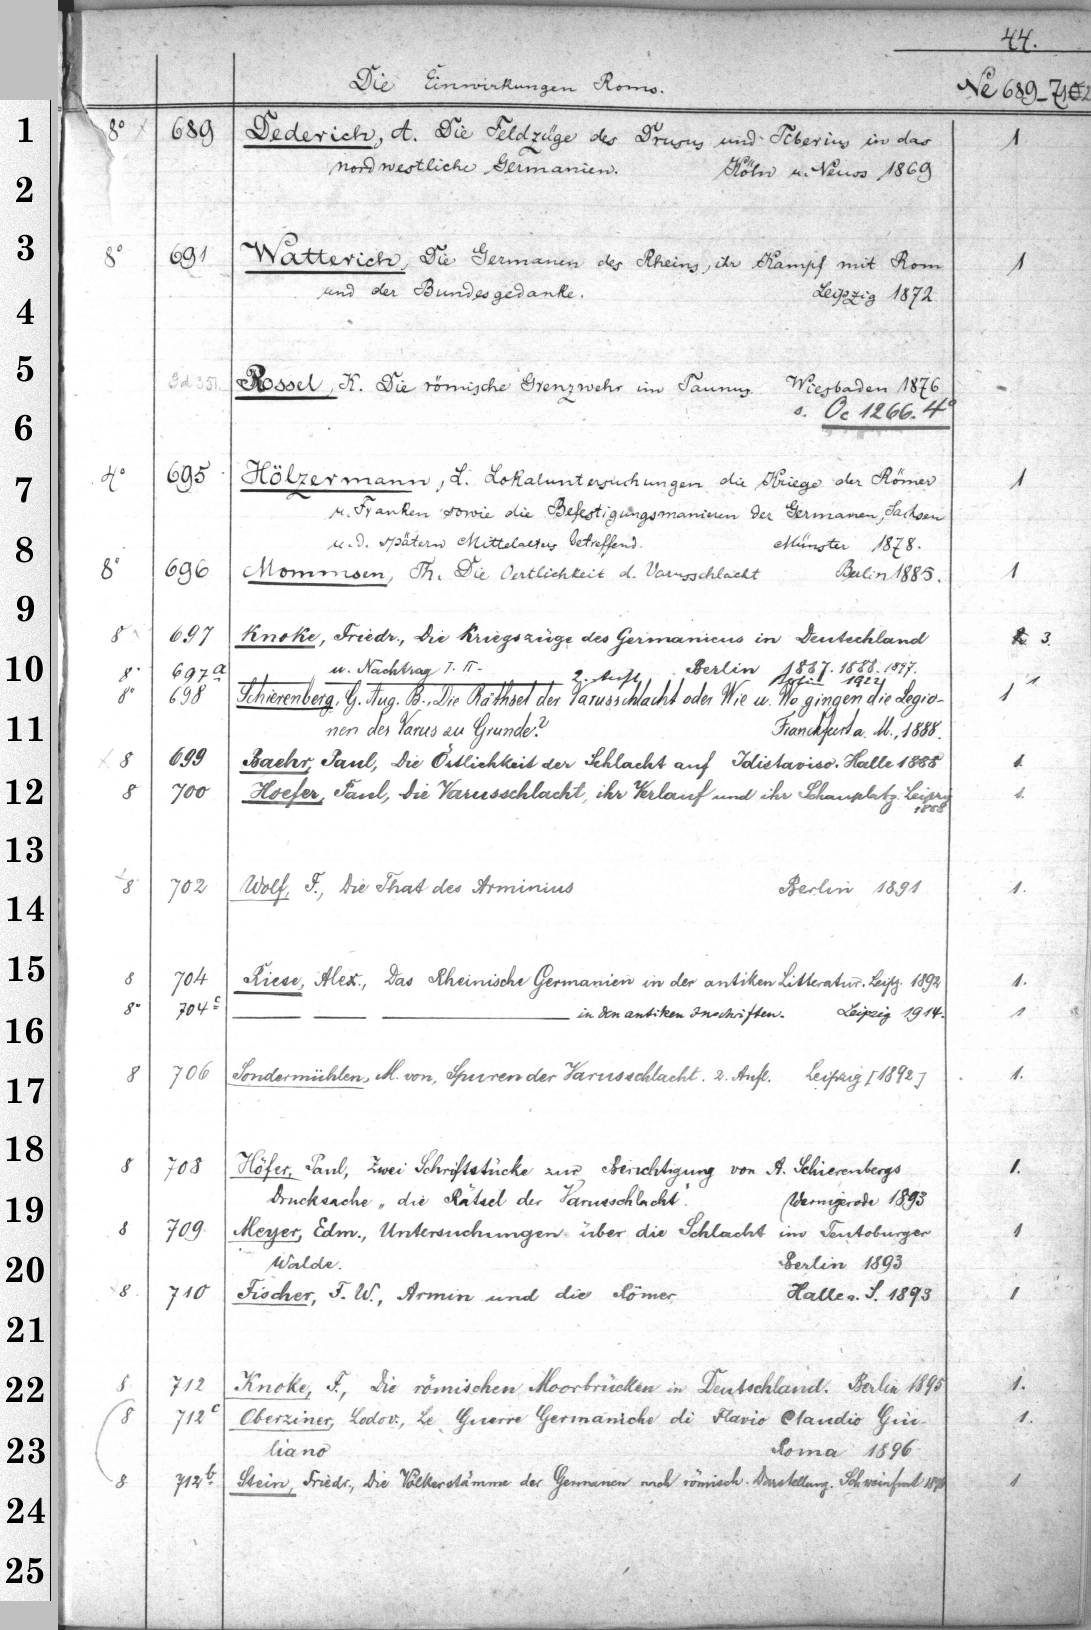 44.
Die Einwirkungen Roms. Ne 689-712
1 8° 689 Dederich, A. Die Feldzüge des Drusus und Tiberius in das 1
2 nordwestliche Germanien. Köln u. Neuss 1869
3 8° 691 Watterich, Die Germanen des Rheins, ihr Kampf mit Rom 1
4 und der Bundesgedanke. Leipzig 1872
5 Rossel, K. Die römische Grenzwehr im Taunus Wiesbaden 1876
6 s. Oc 1266. 4°
7 4° 695 Hölzermann, L. Lokaluntersuchungen die Kriege der Römer 1
u. Franken sowie die Befestigungsmanieren der Germanen, Sachsen
8 u. d. spätern Mittelalters betreffend. Münster 1878.
8° 696 Mommsen, Th. Die Oertlichkeit d. Varusschlacht Berlin 1885. 1
9 8 697 Knoke, Friedr., Die Kriegszüge des Germanicus in Deutschland 3.
10 u. Nachtrag I. II. Berlin 1887. 1888. 1897.
8° 697a 2. Aufl. 1922 1
8° 698 Schierenberg, G. Aug. B., Die Räthsel der Varusschlacht oder Wie u. Wo gingen die Legio- 1
11 nen des Varus zu Grunde? Frankfurt a. M., 1888.
8 699 Baehr, Paul, Die Örtlichkeit der Schlacht auf Idistaviso. Halle 1888 1.
12 8 700 Hoefer, Paul, Die Varusschlacht, ihr Verlauf und ihr Schauplatz. Leipzig 1.
1888
13
14 8 702 Wolf, F., Die That des Arminius Berlin 1891 1.
15 8 704 Riese, Alex., Das Rheinische Germanien in der antiken Litteratur. Leipz. 1892 1.
16 8° 704c — — — in den antiken Inschriften. Leipzig 1914. 1
17 8 706 Sondermühlen, M. von, Spuren der Varusschlacht. 2. Aufl. Leipzig [1892] 1.
18 8 708 Höfer, Paul, Zwei Schriftstücke zur Berichtigung von A. Schierenbergs 1.
19 Drucksache „die Rätsel der Varusschlacht". Wernigerode 1893
8 709 Meyer, Edm., Untersuchungen über die Schlacht im Teutoburger 1
20 Walde. Berlin 1893
8 710 Fischer, F. W., Armin und die Römer Halle a. S. 1893 1
21
22 8 712 Knoke, F., Die römischen Moorbrücken in Deutschland. Berlin 1895 1.
8 712c Oberziner, Lodov., Le Guerre Germaniche di Flavio Claudio Giu- 1.
23 liano Roma 1896
8 712b Stein, Friedr., Die Völkerstämme der Germanen nach römisch. Darstellung. Schweinfurt 1
24
25